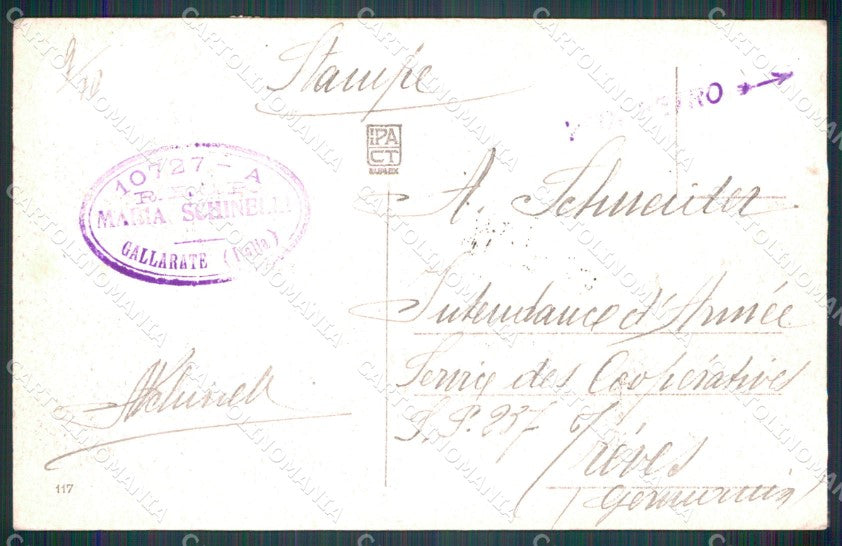 9/10
Stampe
RO
IPA
CT
10727 - A
MARIA SCHINELLI
GALLARATE (Italia)
A. Schneider
Intendance d'Armée
Service des Coopératives
S.P. 237 Trèves
Germania
MSchinelli
117
CARTOLINOMANIA